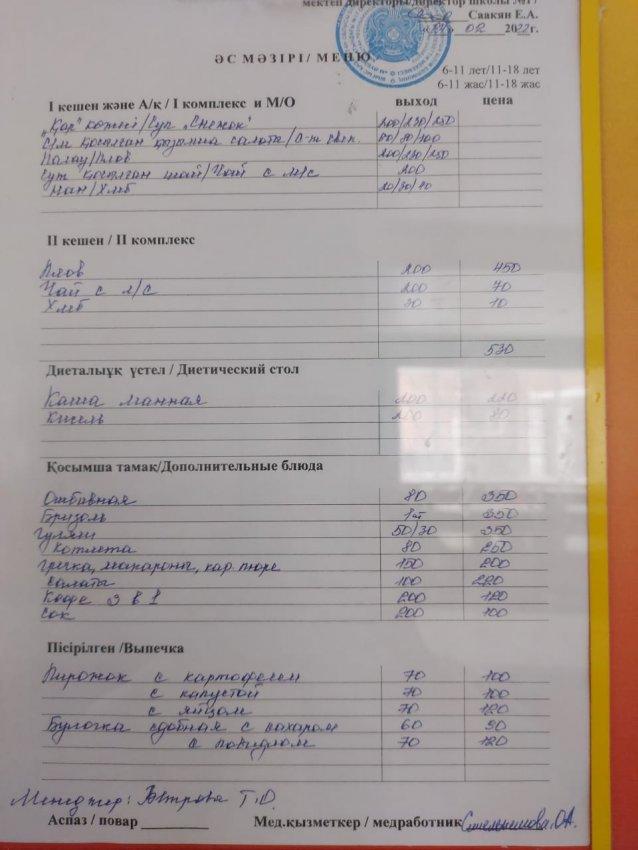 мектеп директоры/директор школы №17
Саакян Е.А.
02 2022г.
ӘС МӘЗІРІ / МЕНЮ
6-11 лет/11-18 лет
6-11 жас/11-18 жас
I кешен және А/қ / I комплекс и М/О выход цена
„Қар" көжесі/Суп „Снежок" 200/230/250
қосылған салаты/ 60/80/100
Палау/Плов 200/230/250
Сүт қосылған шай/Чай с м/с 200
Нан/Хлеб 20/30/40
II кешен / II комплекс
Плов 200 450
Чай с м/с 200 70
Хлеб 30 10
530
Диеталық үстел / Диетический стол
Каша манная 200
Кисель 200 80
Қосымша тамақ/Дополнительные блюда
Отбивная 80 350
Бризоль 1шт 350
Гуляш 50/30 350
Котлета 80 250
Гречка, макароны, кар. пюре 150 200
Салаты 100 220
Кофе 3 в 1 200 120
Сок 200 100
Пісірілген /Выпечка
Пирожок с картофелем 70 100
с капустой 70 100
с яйцом 70 120
Булочка сдобная с сахаром 60 90
с повидлом 70 120
Менеджер: Т.О.
Аспаз / повар ________ Мед.қызметкер / медработник О.А.